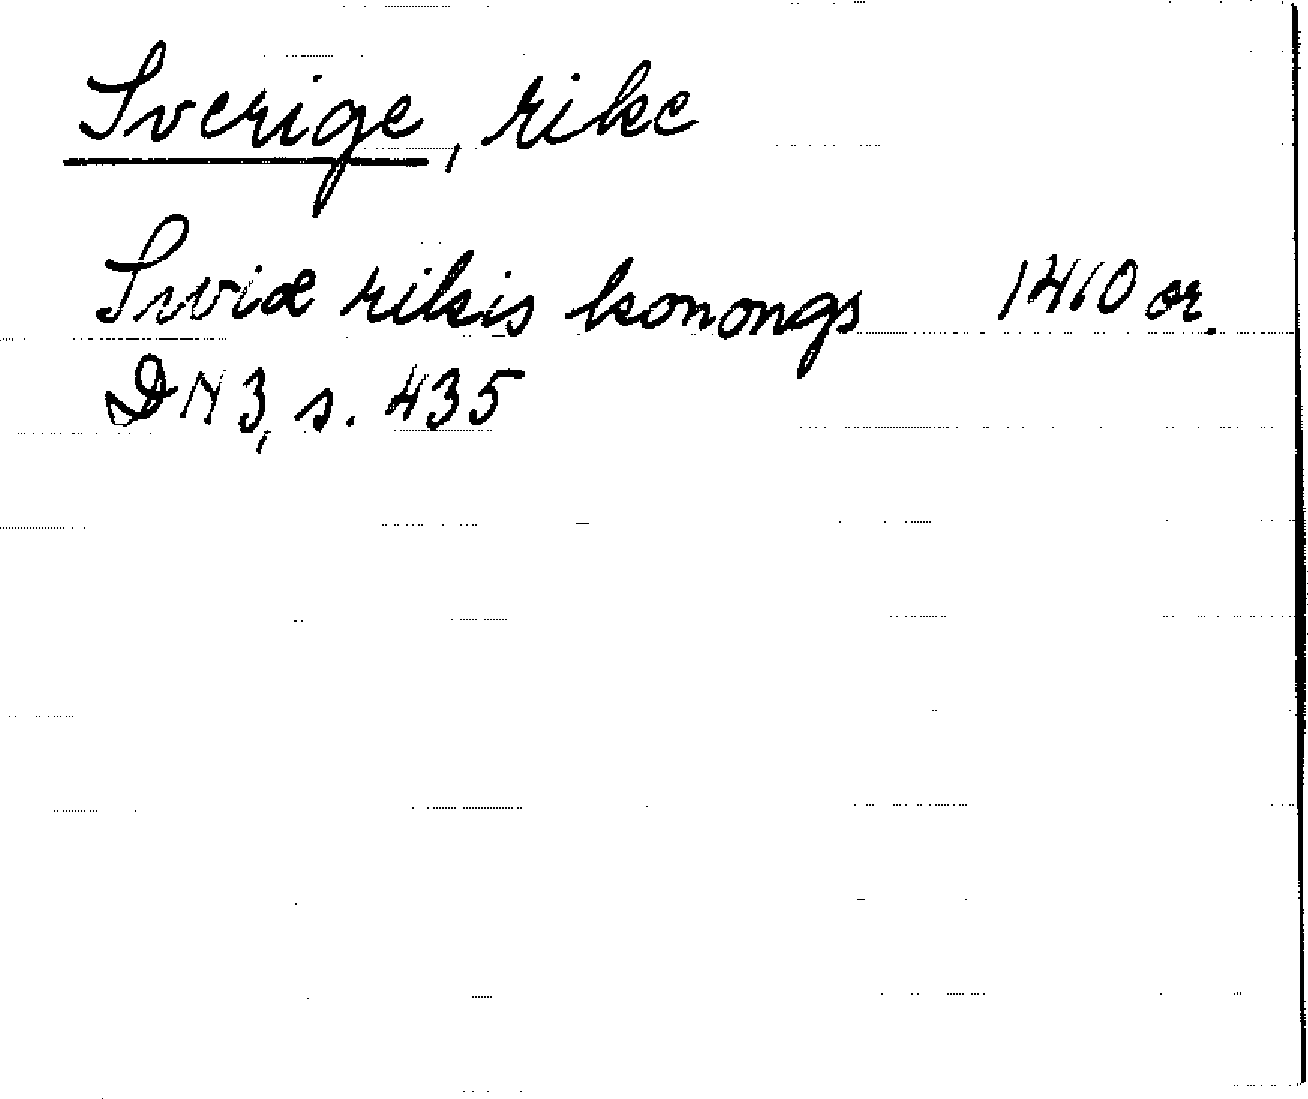 Sverige, rike
Swiæ rikis konongs 1410 or.
DN 3, s. 435